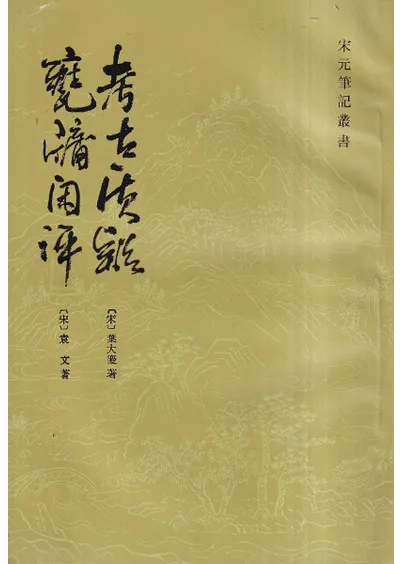 宋元筆記叢書
考古質疑
〔宋〕葉大慶著
甕牖閑評
〔宋〕袁 文著